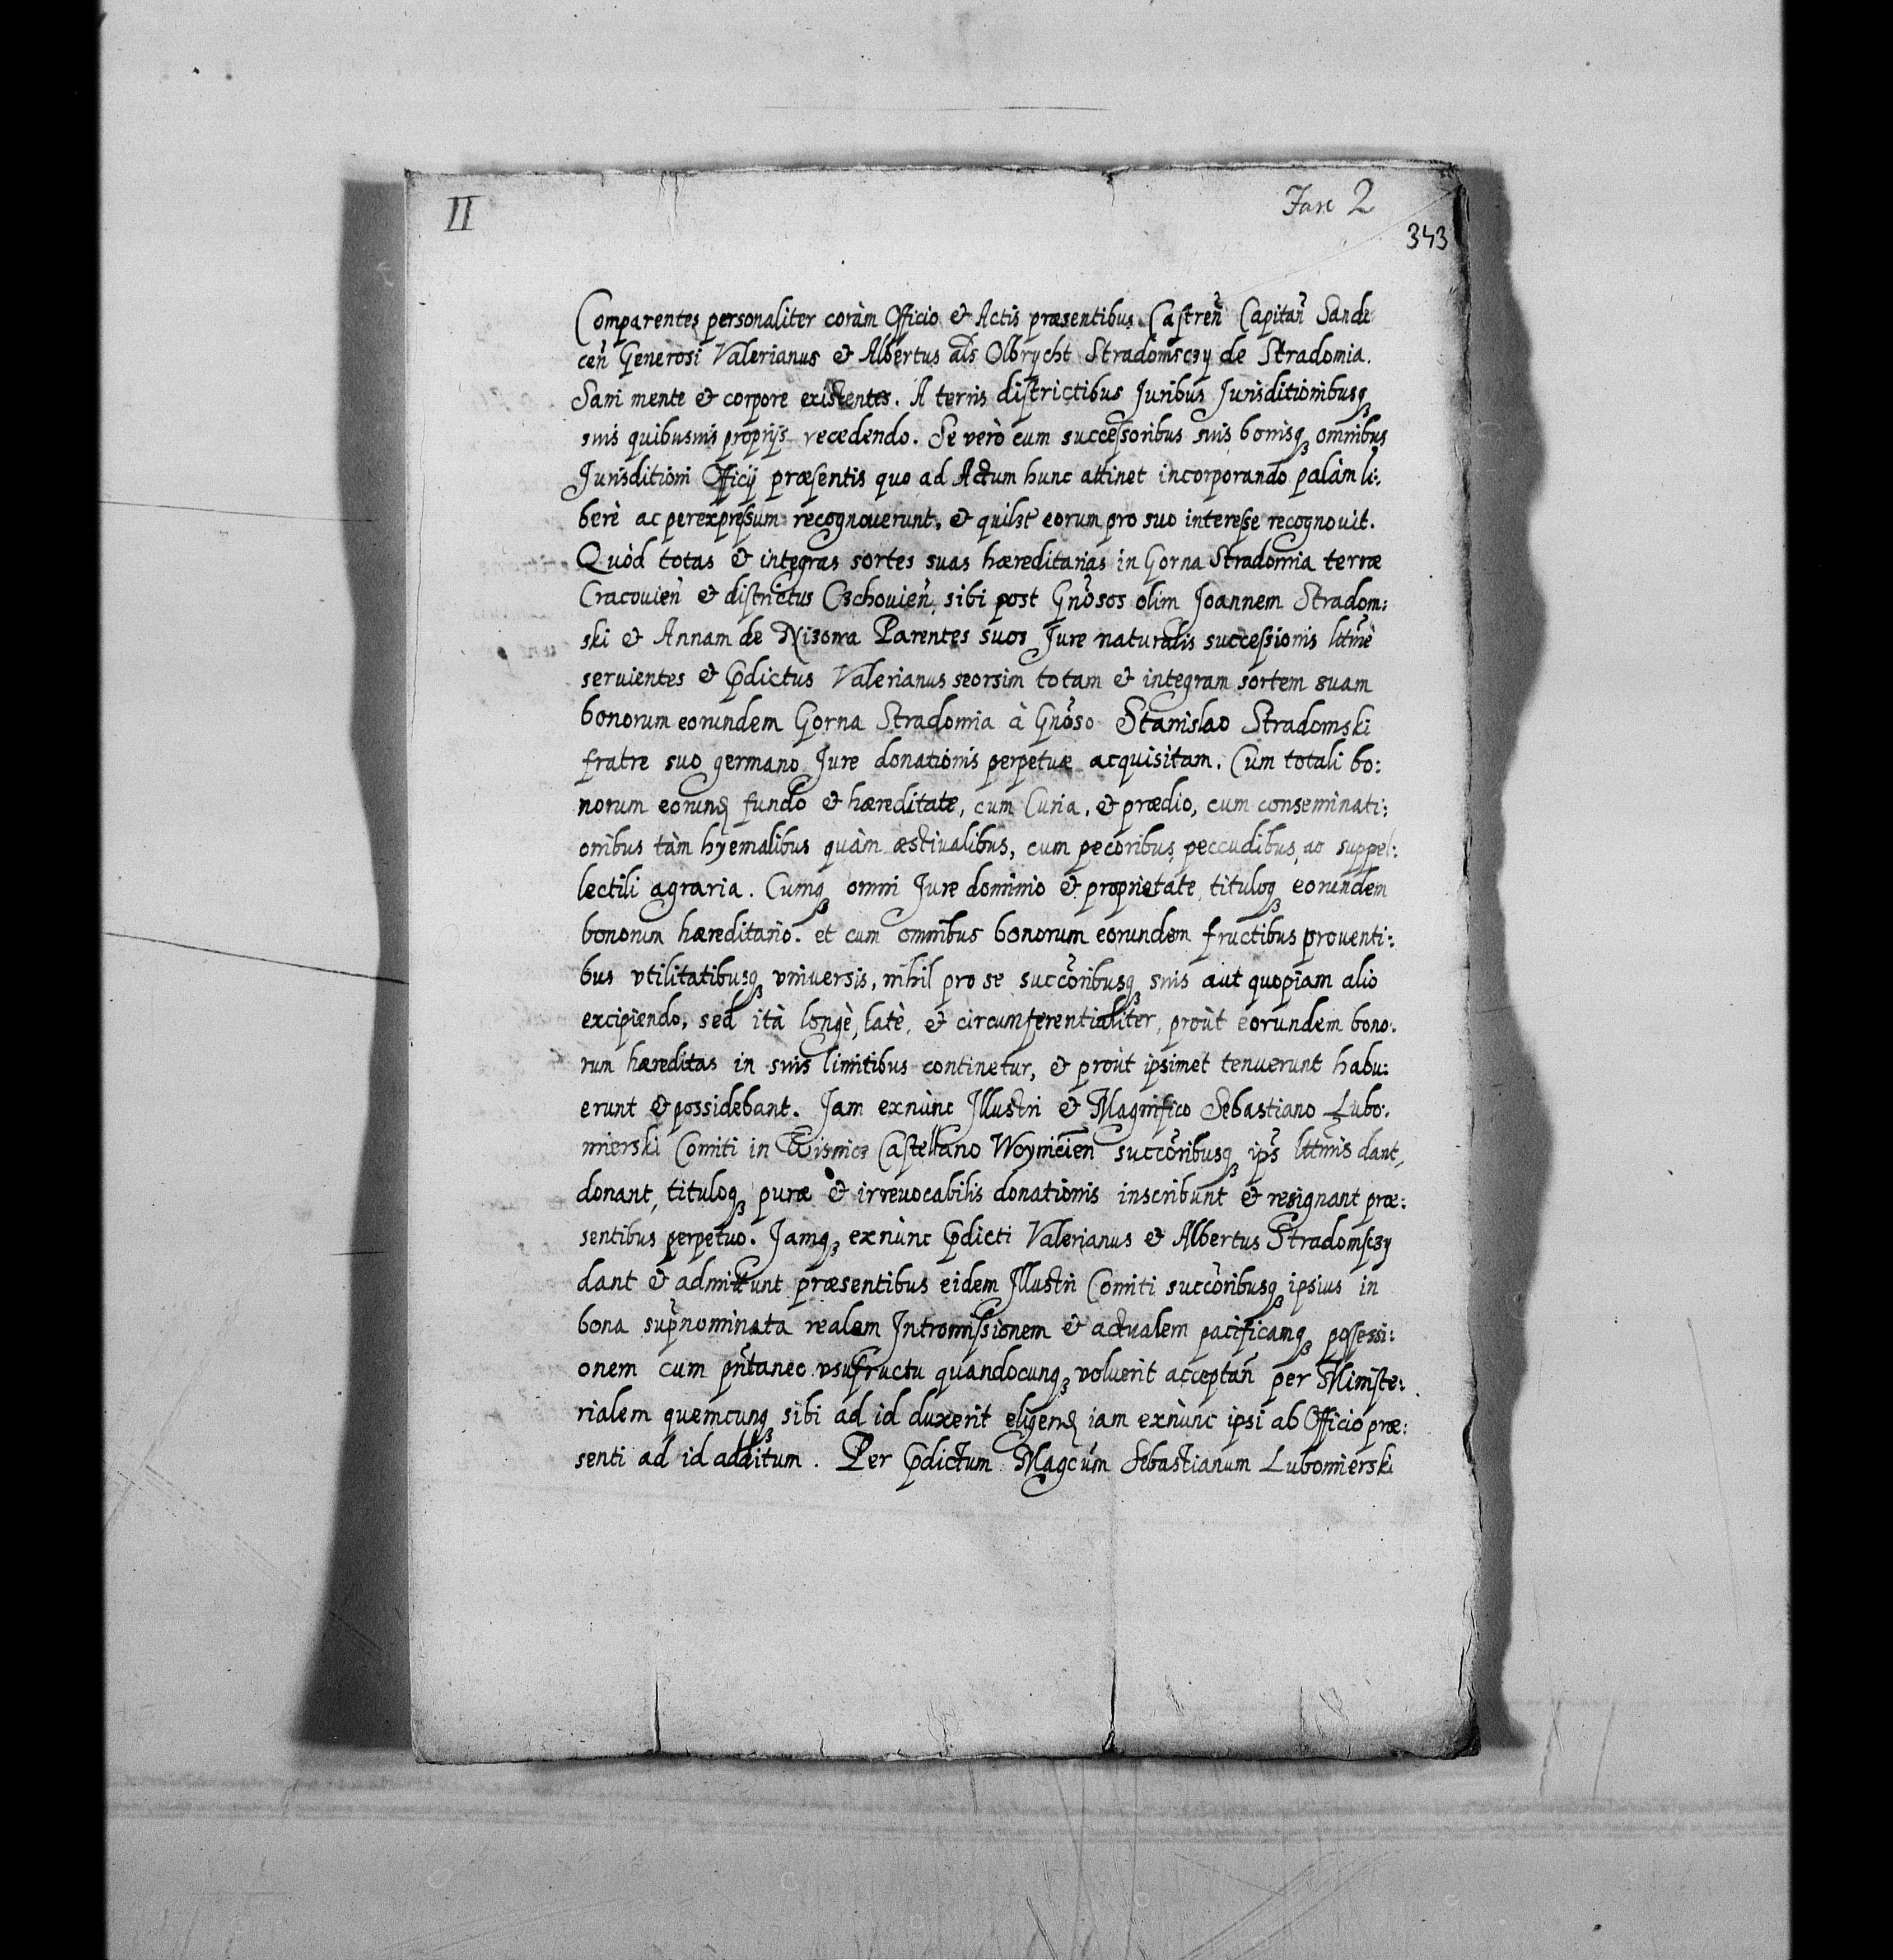 II
Fasc 2
343
Comparentes personaliter coràm Officio et Actis præsentibus Castren̄ Capitan̄ Sande
cen̄ Generosi Valerianus et Albertus als Olbrycht Stradomsczy de Stradomia.
Sani mente et corpore existentes. A terris districtibus Juribus Jurisditionibusq₃
suis quibusuis proprijs recedendo. Se verò cum successoribus suis bonisq₃ omnibus
Jurisditioni Officij præsentis quo ad Actum hunc attinet incorporando palàm li:
berè ac per expressum recognouerunt, et quilꝫt eorum pro suo interesse recognouit.
Quòd totas et integras sortes suas hæreditarias in Gorna Stradomia terræ
Cracouien̄ et districtus Cschouien̄, sibi post Gnōsos olim Joannem Stradom:
ski et Annam de Nizowa Parentes suos Jure naturalis successionis lttmè
seruientes et Pdictus Valerianus seorsim totam et integram sortem suam
bonorum eorundem Gorna Stradomia à Gnōso Stanislao Stradomski
fratre suo germano Jure donationis perpetuæ acquisitam. Cum totali bo:
norum eorund fundo et hæreditate, cum Curia, et prædio, cum conseminati:
onibus tàm hyemalibus quàm æstiualibus, cum pecoribus peccudibus, ac suppel:
lectili agraria. Cumq₃ omni Jure dominio et proprietate tituloq₃ eorundem
bonorum hæreditario. et cum omnibus bonorum eorundem fructibus prouenti:
bus vtilitatibusq₃ vniuersis, nihil pro se succōribusq₃ suis aut quopiam alio
excipiendo, sed ità longè, latè, et circumferentialiter, proùt eorundem bono:
rum hæreditas in suis limitibus continetur, et proùt ipsimet tenuerunt habu:
erunt et possidebant. Jam exnùnc Jllustri et Magnifico Sebastiano Lubo:
mierski Comiti in Wisnicz Castellano Woynicien̄ succōribusq₃ ips̄ lttmis dant,
donant, tituloq₃ puræ et irreuocabilis donationis inscribunt et resignant præ:
sentibus perpetuo. Jamq₃ exnùnc Pdicti Valerianus et Albertus Stradomsczy
dant et admittunt præsentibus eidem Jllustri Comiti succōribusq₃ ipsius in
bona sup̄nominata realem Jntromissionem et actualem pacificamq₃ possessi:
onem cum pn̄taneo vsufructu quandocunq₃ voluerit acceptan̄ per Ministe:
rialem quemcunq₃ sibi ad id duxerit eligend iam exnùnc ipsi ab Officio præ:
senti ad id additum. Per Pdictum Magcūm Sebastianum Lubomierski